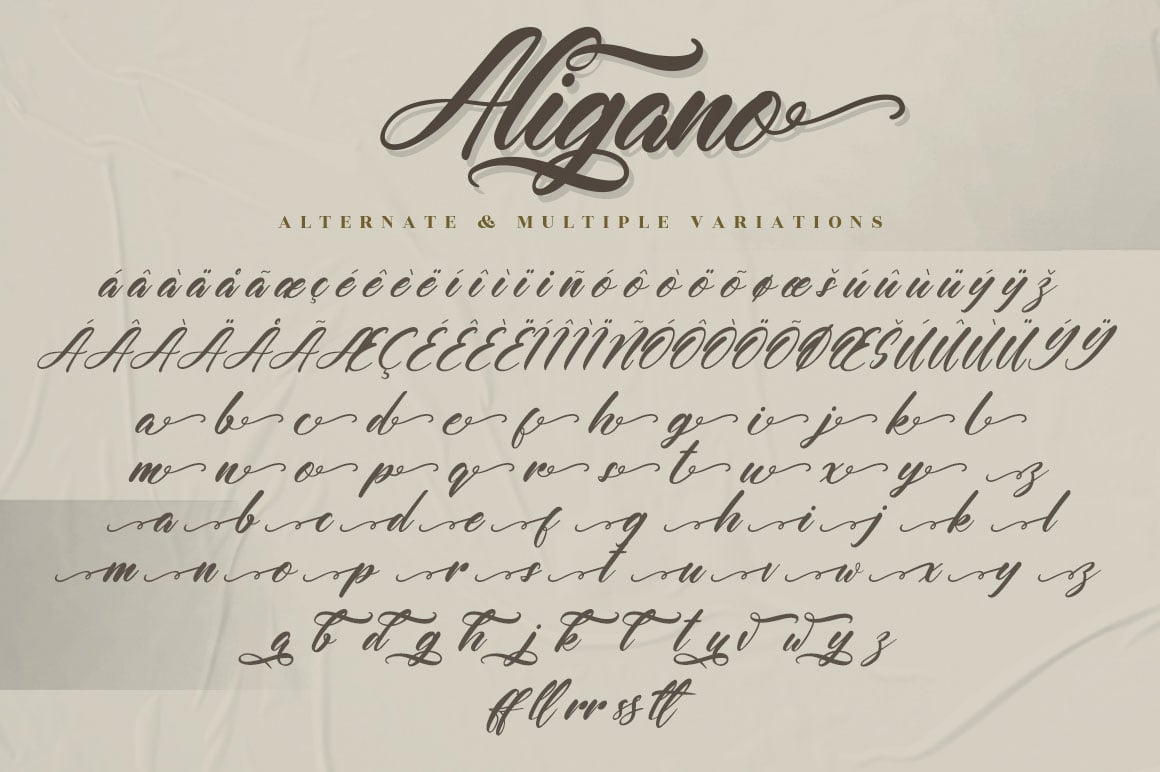 Aligano
ALTERNATE & MULTIPLE VARIATIONS
áâàäåãæçéêèëíîìïiñóôòöõøœšúûùüýÿž
ÁÂÀÄÅÃÆÇÉÊÈËÍÎÌÏÑÓÔÒÖÕØŒŠÚÛÙÜÝŸ
a b c d e f h g i j k l
m n o p q r s t w x y z
a b c d e f g h i j k l
m n o p r s t u v w x y z
q b d g h j k l t y v w y z
ff ll rr ss tt